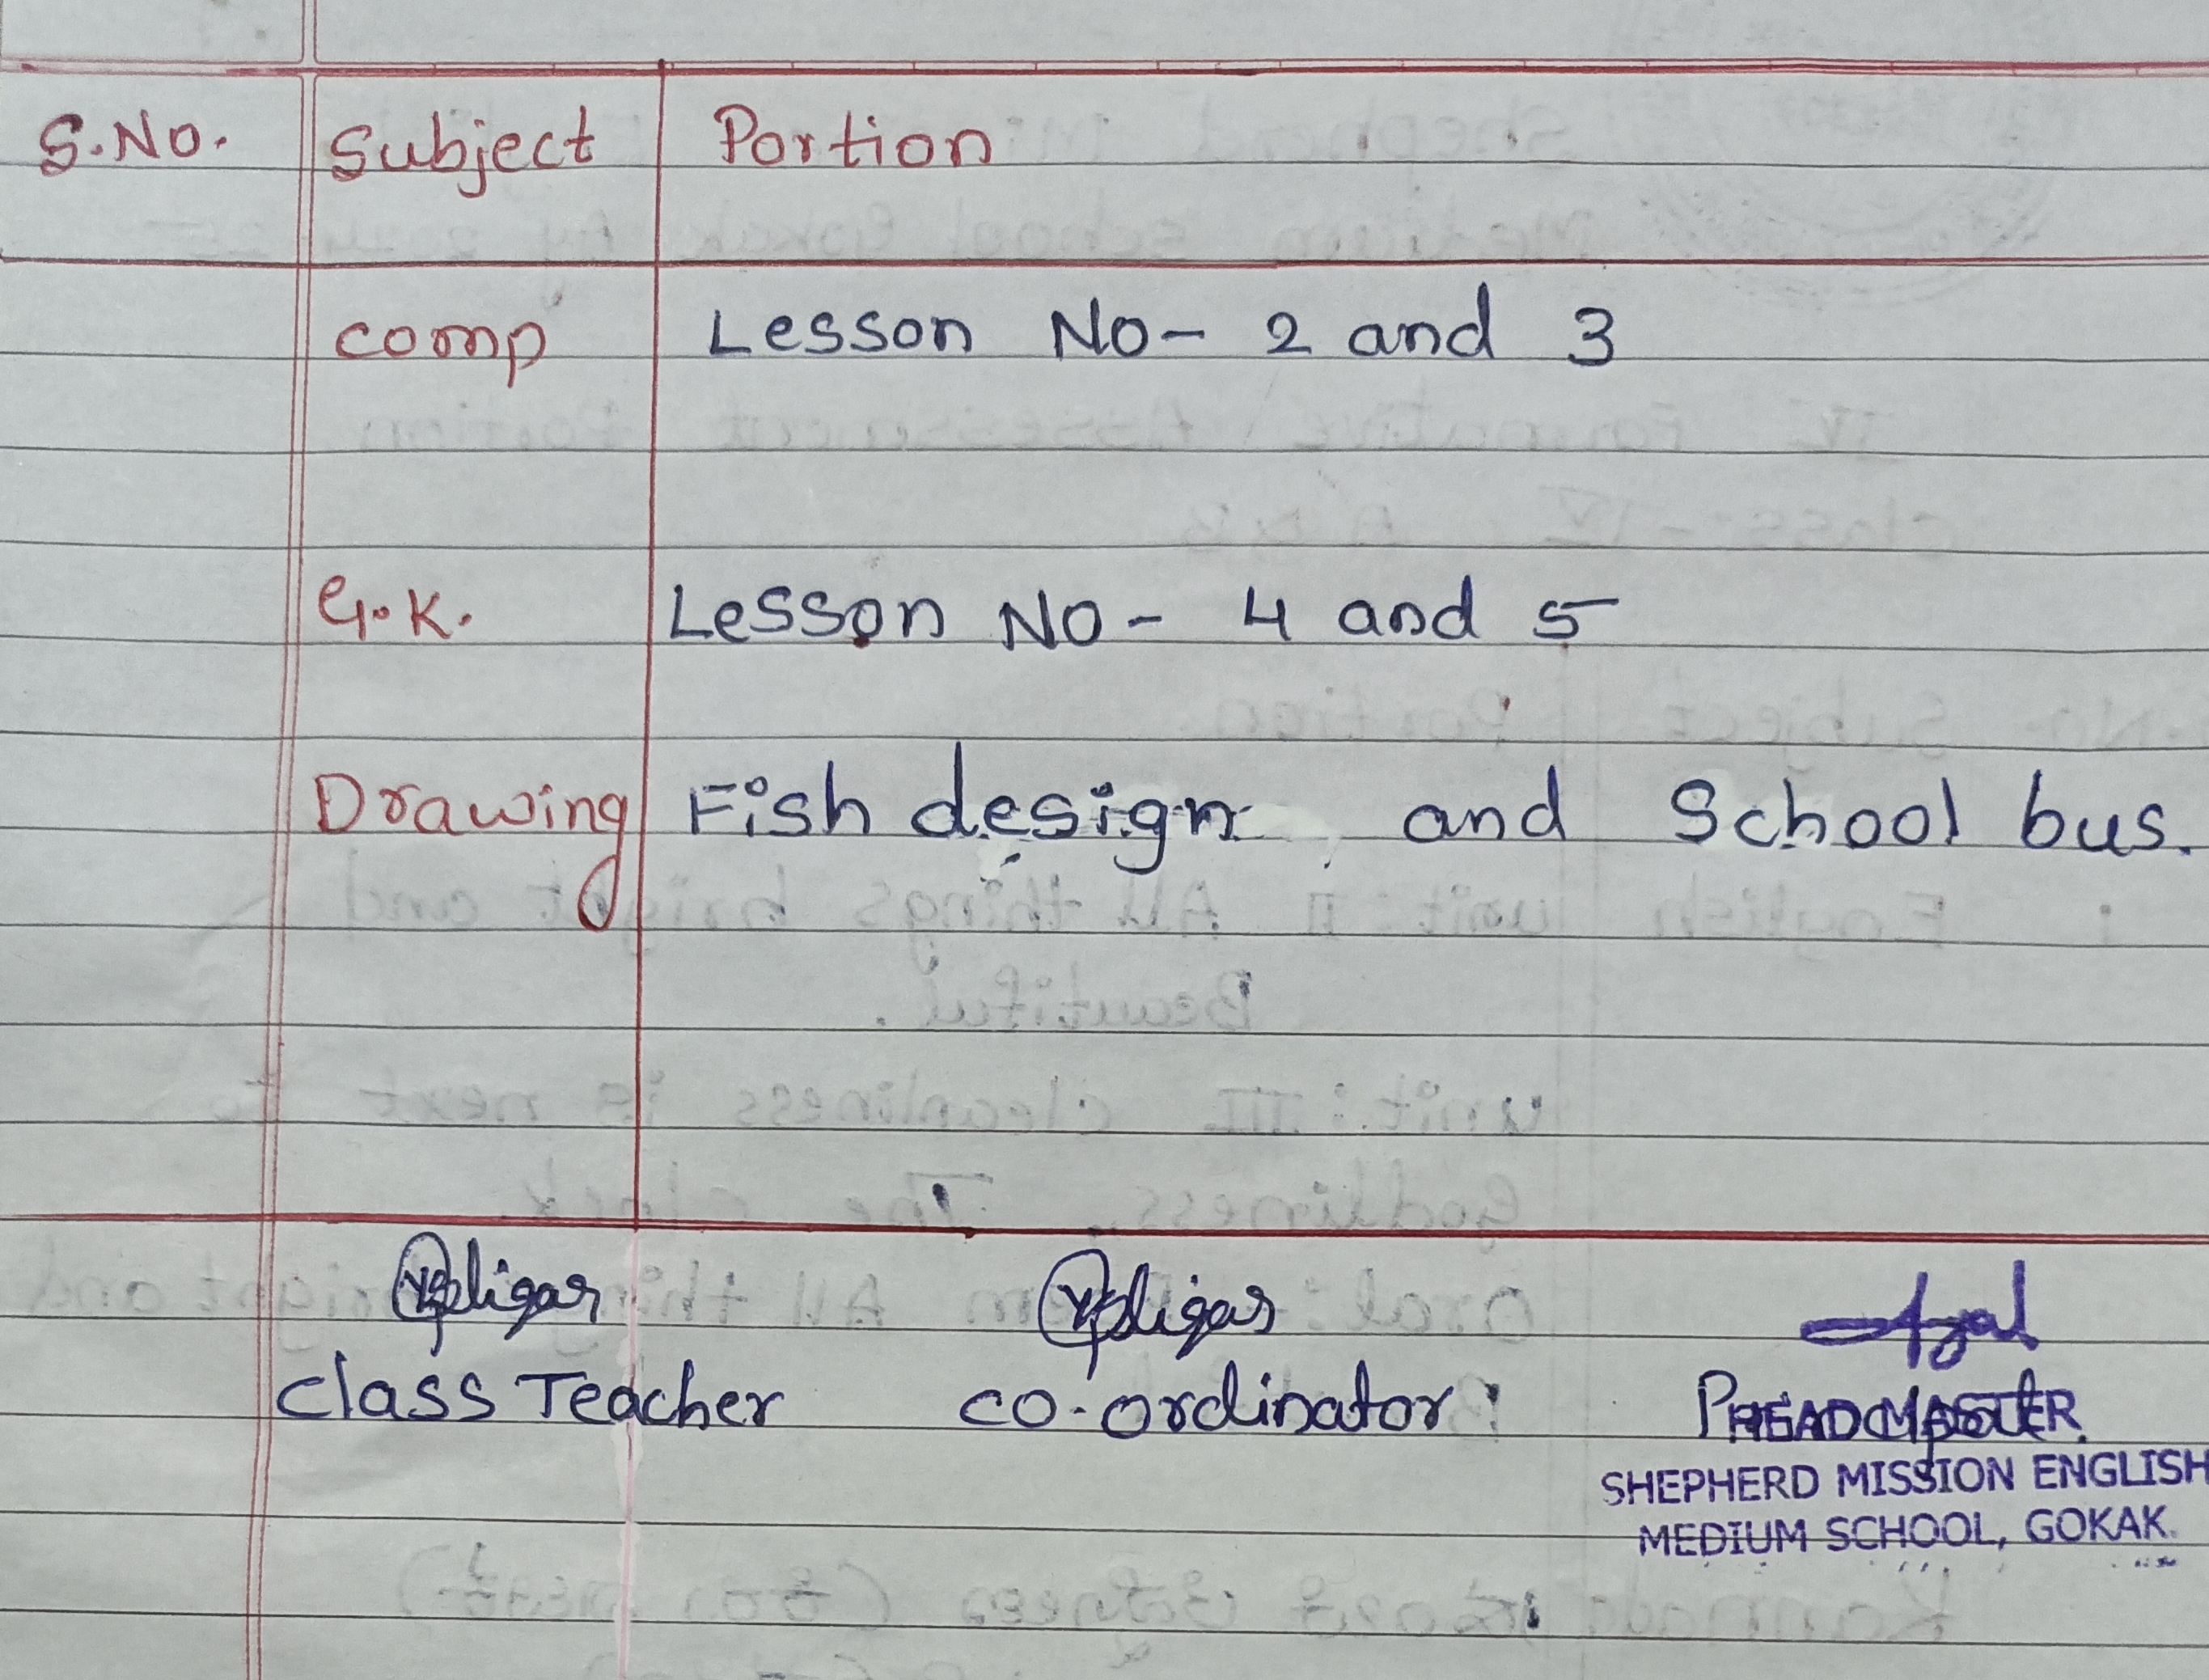 S.No. Subject Portion
comp Lesson No- 2 and 3
G.K. Lesson No- 4 and 5
Drawing Fish design and School bus.
class Teacher co-ordinator
HEAD MASTER
SHEPHERD MISSION ENGLISH
MEDIUM SCHOOL, GOKAK.